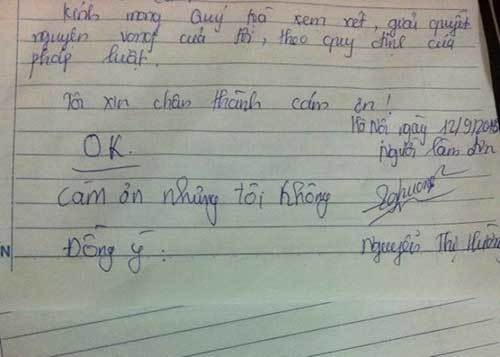 Kính mong Quý toà xem xét, giải quyết
nguyện vọng của tôi, theo quy định của
pháp luật.
Tôi xin chân thành cám ơn!
Hà Nội ngày 12/9/20
Người làm đơn
OK.
Cám ơn nhưng tôi không
Đồng ý.
Nguyễn Thị Hường
N